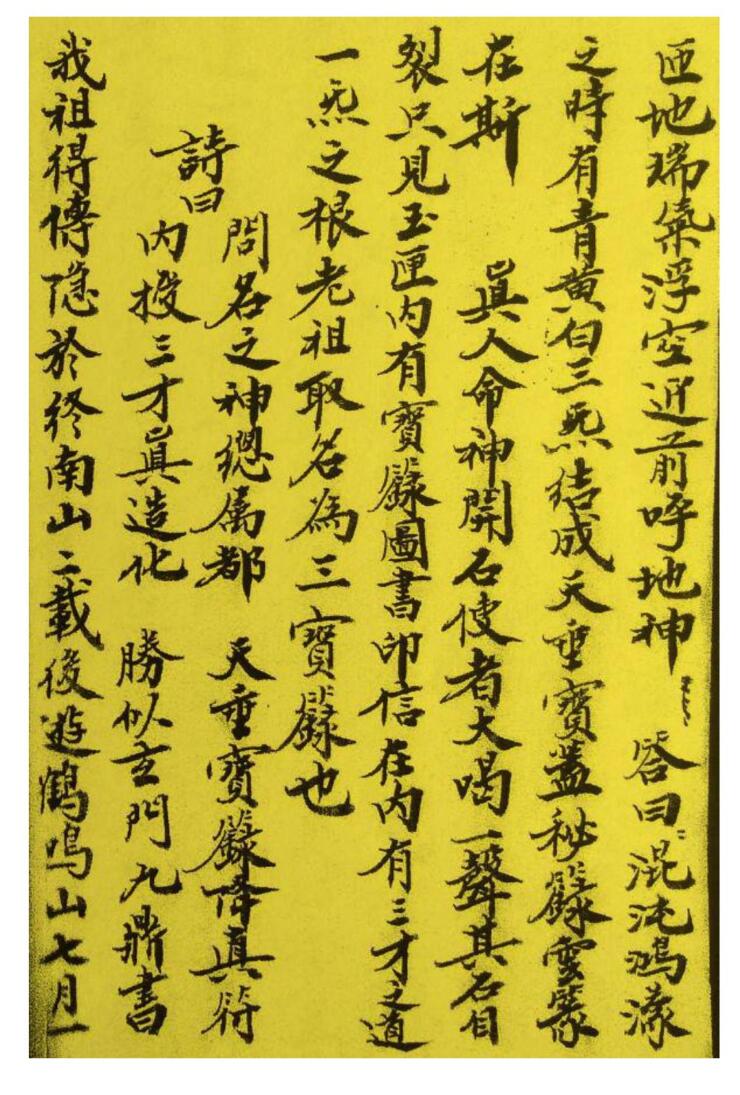 匝地瑞氣浮空近前呼地神〻〻答曰〻混沌鴻濛
之時有青黃白三炁結成天垂寶蓋秘籙雲篆
在斯 眞人命神開石使者大喝一聲其石自
裂只見玉匣內有寶籙圖書印信在內有三才之道
一炁之根老祖取名為三寶籙也
詩曰
問名之神總属都 天垂寶籙降真符
內按三才眞造化 勝似玄門九鼎書
我祖得傳隱於終南山二載後遊鶴鳴山七月一